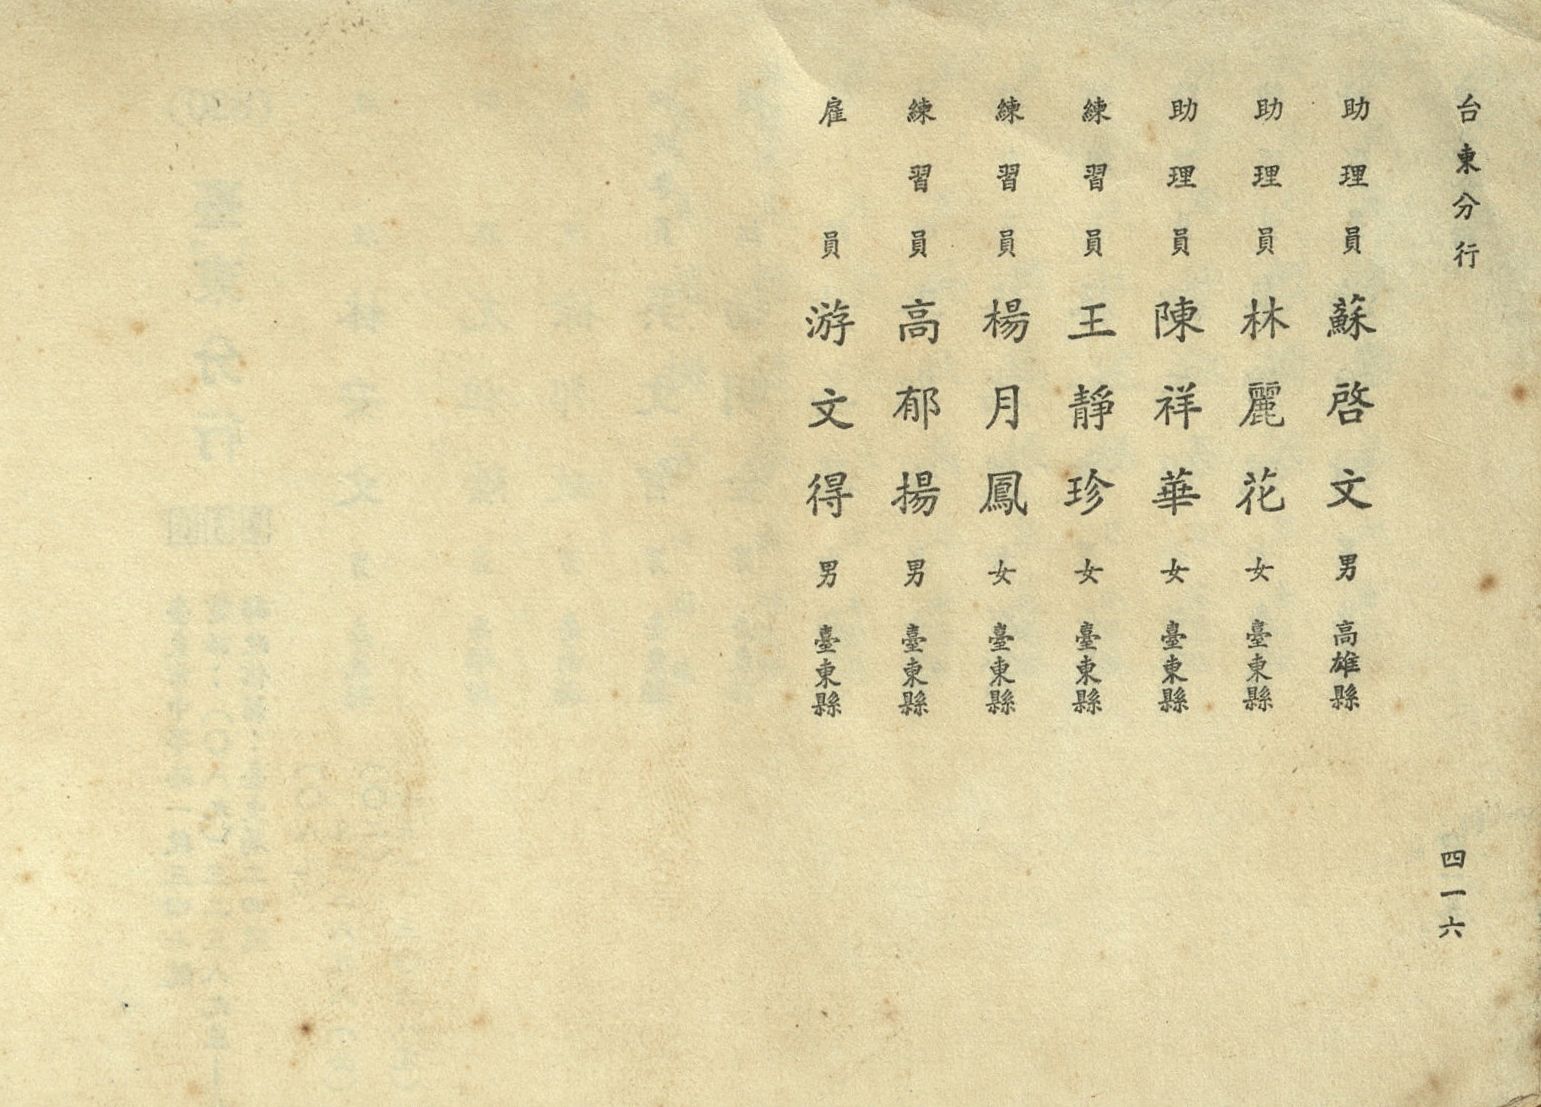 台東分行
四一六
助理員 蘇啓文 男 高雄縣
助理員 林麗花 女 臺東縣
助理員 陳祥華 女 臺東縣
練習員 王靜珍 女 臺東縣
練習員 楊月鳳 女 臺東縣
練習員 高郁揚 男 臺東縣
雇員 游文得 男 臺東縣